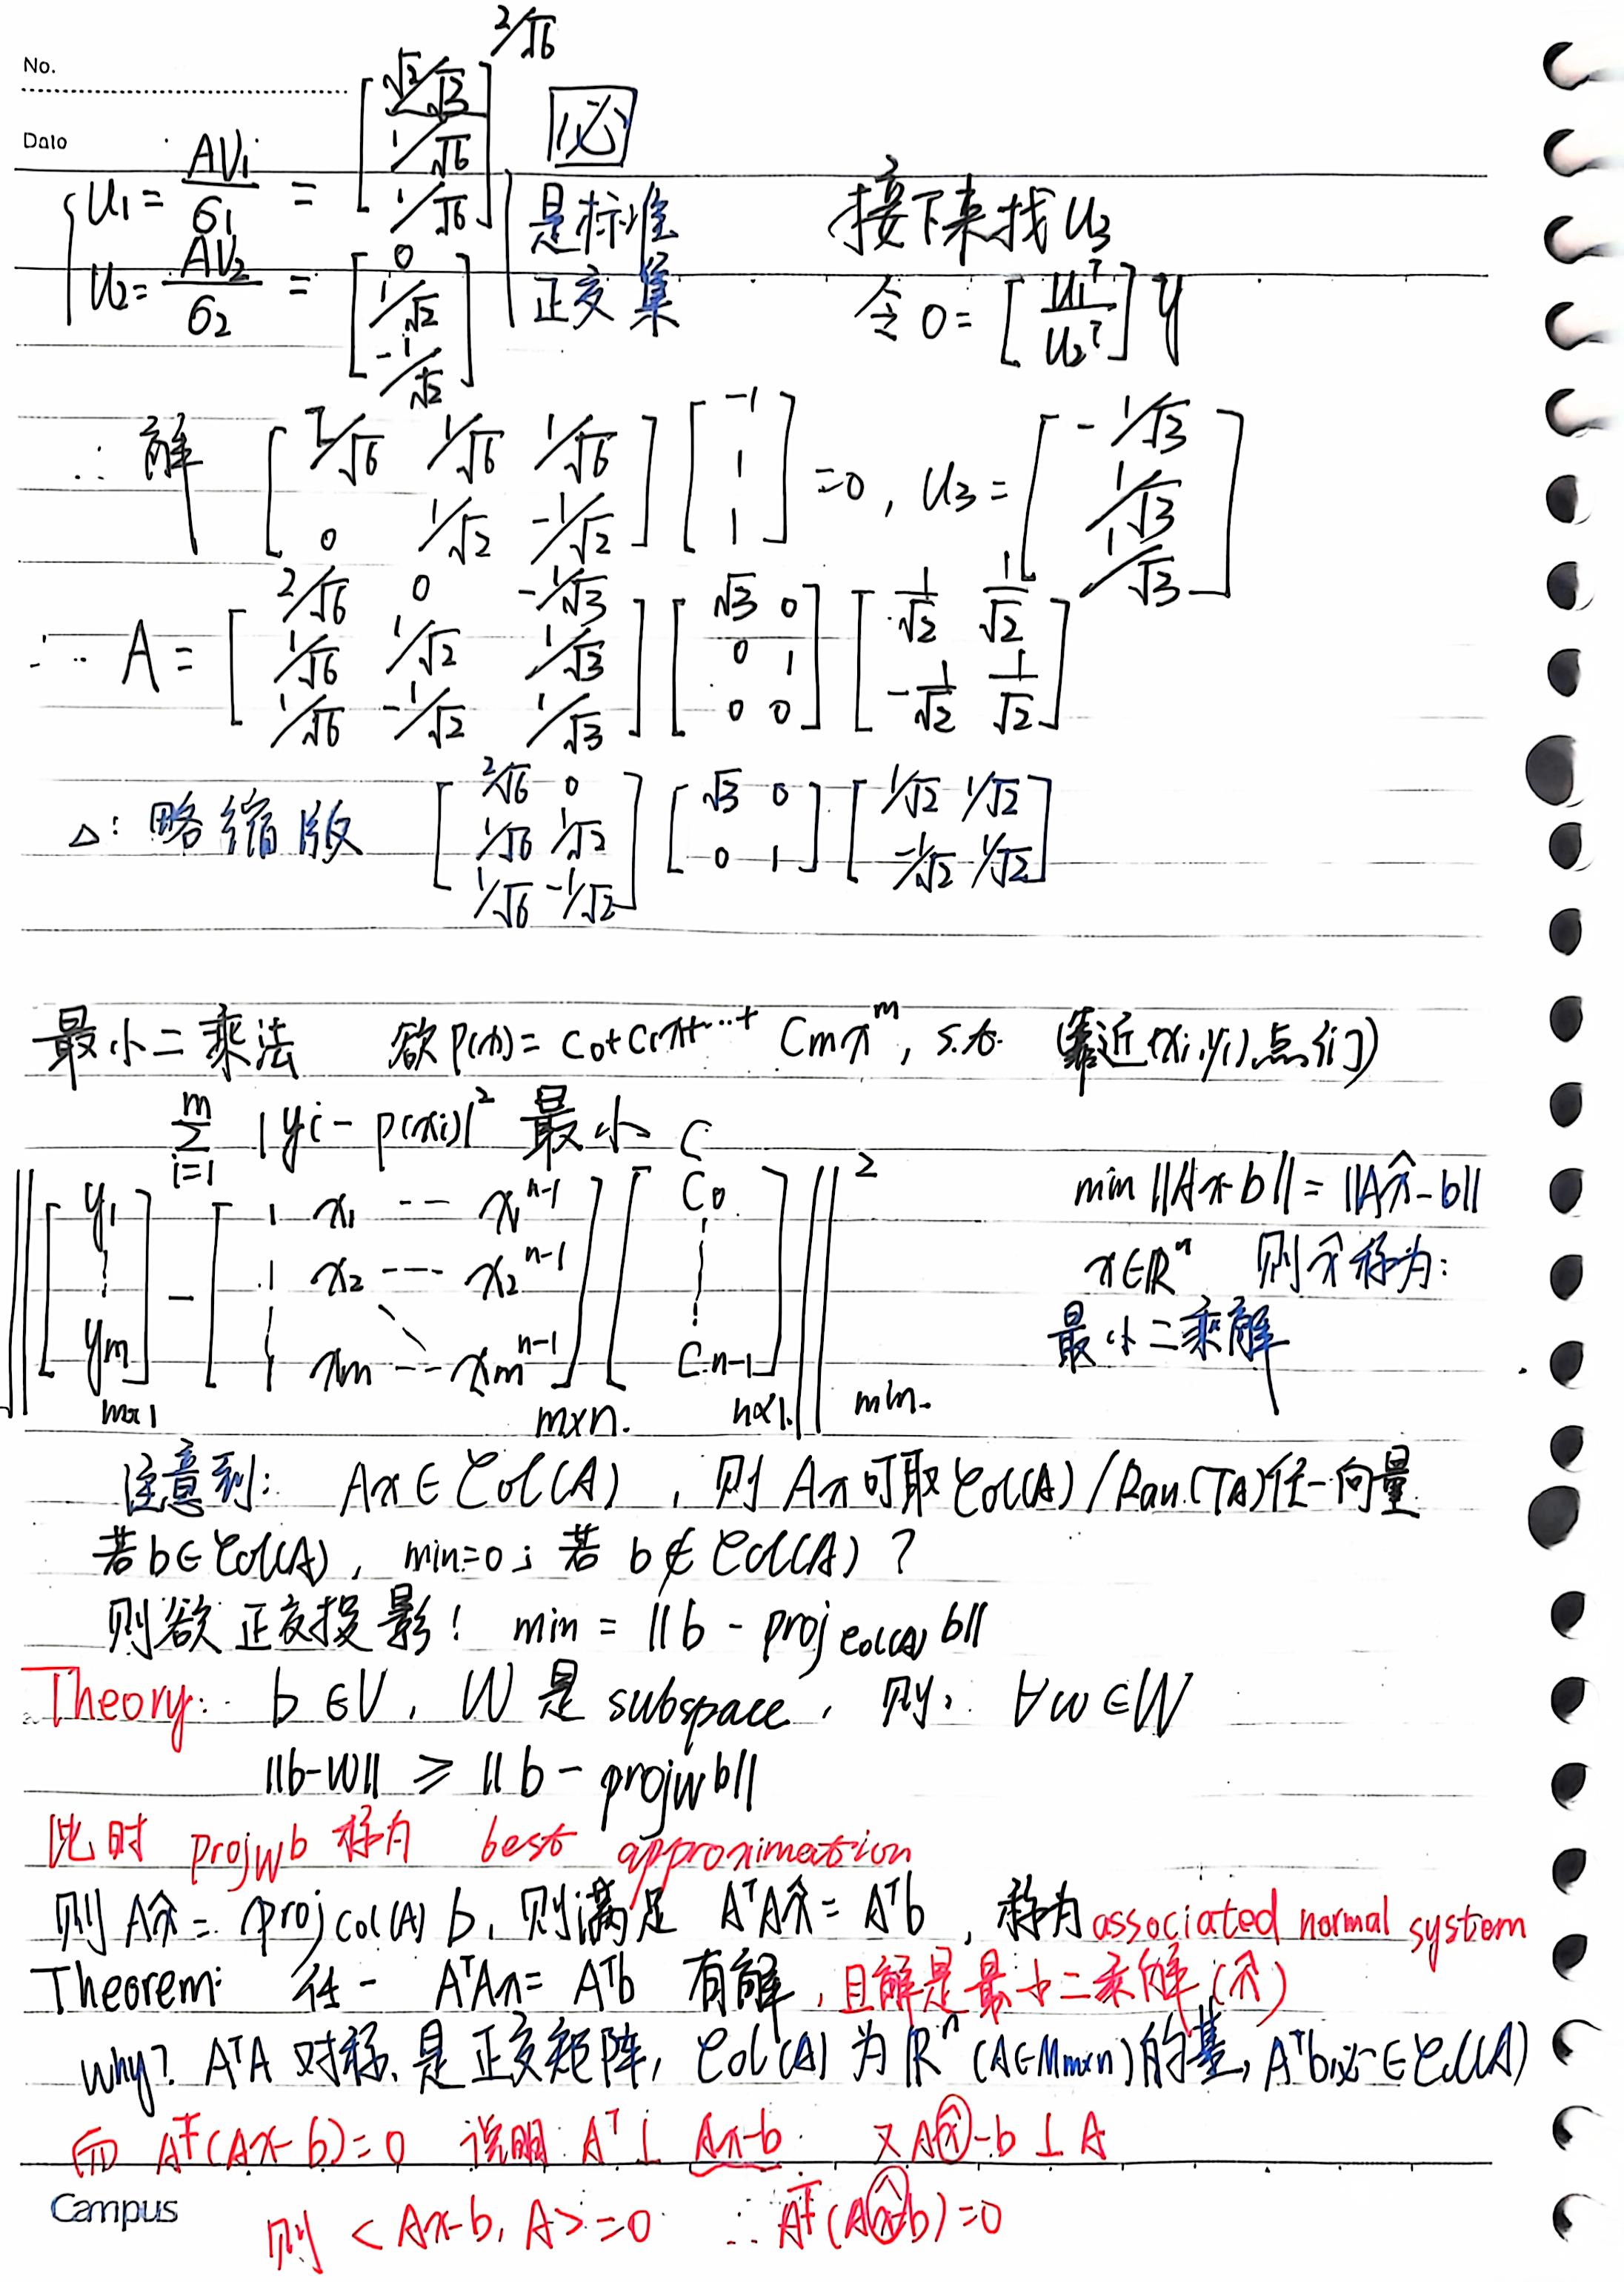 No.
Date
u₁ = Av₁/σ₁ = [√2/√3; 1/√6; 1/√6] 2/√6
必
u₂ = Av₂/σ₂ = [0; 1/√2; -1/√2]
是标准
正交集
接下来找 u₃
令 0 = [u₁ᵀ; u₂ᵀ] y
∴ 解 [2/√6 1/√6 1/√6; 0 1/√2 -1/√2] [-1; 1; 1] = 0, u₃ = [-1/√3; 1/√3; 1/√3]
∴ A = [2/√6 0 -1/√3; 1/√6 1/√2 1/√3; 1/√6 -1/√2 1/√3] [√3 0; 0 1; 0 0] [1/√2 1/√2; -1/√2 1/√2]
△: 略缩版 [2/√6 0; 1/√6 1/√2; 1/√6 -1/√2] [√3 0; 0 1] [1/√2 1/√2; -1/√2 1/√2]
最小二乘法 欲 p(x) = c₀+c₁x+···+ cₘxᵐ, s.t. (靠近(xᵢ,yᵢ)点们)
∑ᵢ₌₁ᵐ |yᵢ - p(xᵢ)|² 最小 C
‖[y₁; ⋮; yₘ] - [1 x₁ ··· x₁ⁿ⁻¹; 1 x₂ ··· x₂ⁿ⁻¹; ⋮ ⋱; 1 xₘ ··· xₘⁿ⁻¹] [c₀; ⋮; cₙ₋₁]‖² min.
m×1 m×n. n×1.
min ‖Ax-b‖ = ‖Ax̂-b‖
x∈ℝⁿ 则 x̂ 称为:
最小二乘解
注意到: Ax ∈ Col(A), 则 Ax 可取 Col(A) / Ran(T_A) 任一向量
若 b∈Col(A), min=0; 若 b∉Col(A)?
则欲正交投影! min = ‖b - proj_Col(A) b‖
Theory: b∈V, W 是 subspace, 则, ∀w∈W
‖b-w‖ ⩾ ‖b - proj_W b‖
此时 proj_W b 称为 best approximation
则 Ax̂ = proj_Col(A) b, 则满足 AᵀAx̂ = Aᵀb, 称为 associated normal system
Theorem: 任一 AᵀAx = Aᵀb 有解, 且解是最小二乘解(x̂)
why? AᵀA 对称, 是正交矩阵, Col(A) 为 ℝⁿ (A∈Mₘₓₙ) 的基, Aᵀb必∈Col(A)
而 Aᵀ(Ax-b)=0 说明 Aᵀ⊥ Ax-b 又 Ax̂-b ⊥ A
则 <Ax-b, A> = 0 ∴ Aᵀ(Ax̂-b)=0
Campus